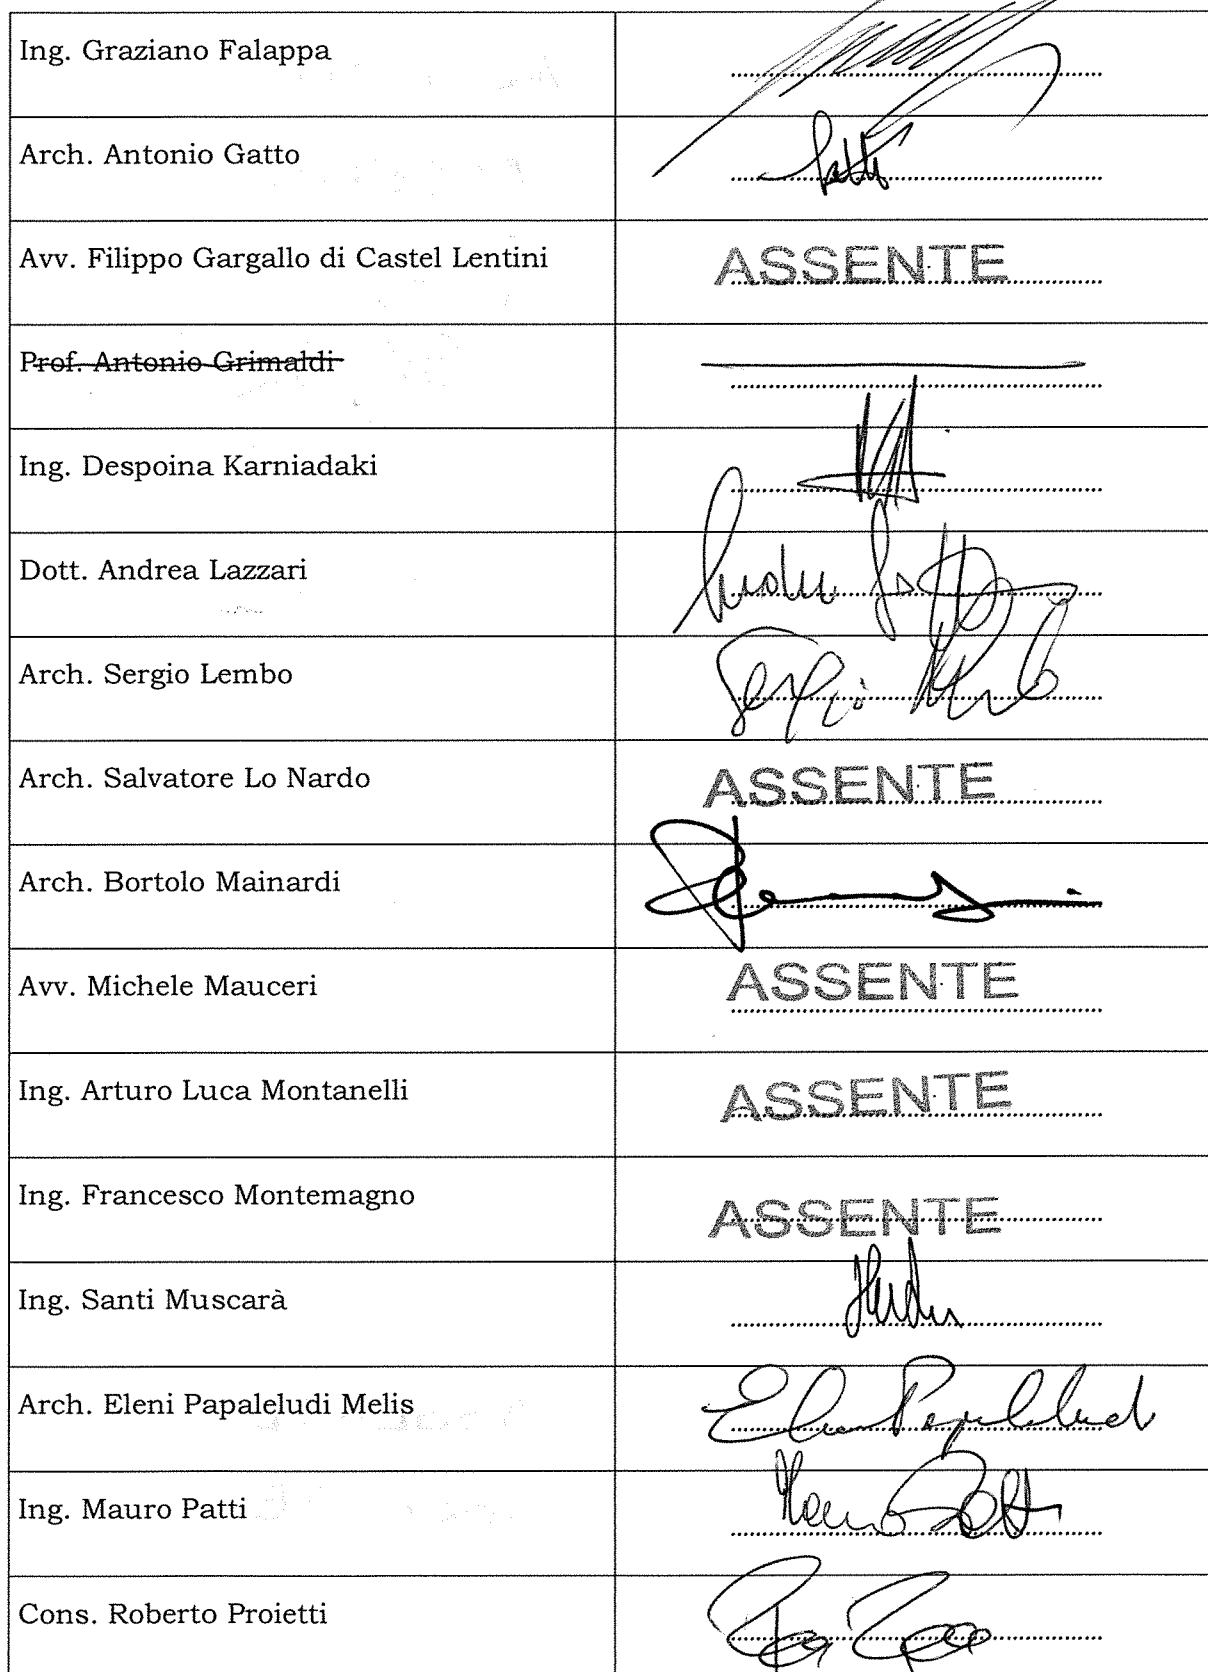 Ing. Graziano Falappa
Arch. Antonio Gatto
Avv. Filippo Gargallo di Castel Lentini ASSENTE
Prof. Antonio Grimaldi
Ing. Despoina Karniadaki
Dott. Andrea Lazzari
Arch. Sergio Lembo Sergio Lembo
Arch. Salvatore Lo Nardo ASSENTE
Arch. Bortolo Mainardi
Avv. Michele Mauceri ASSENTE
Ing. Arturo Luca Montanelli ASSENTE
Ing. Francesco Montemagno ASSENTE
Ing. Santi Muscarà
Arch. Eleni Papaleludi Melis Eleni Papaleludi
Ing. Mauro Patti Mauro Patti
Cons. Roberto Proietti